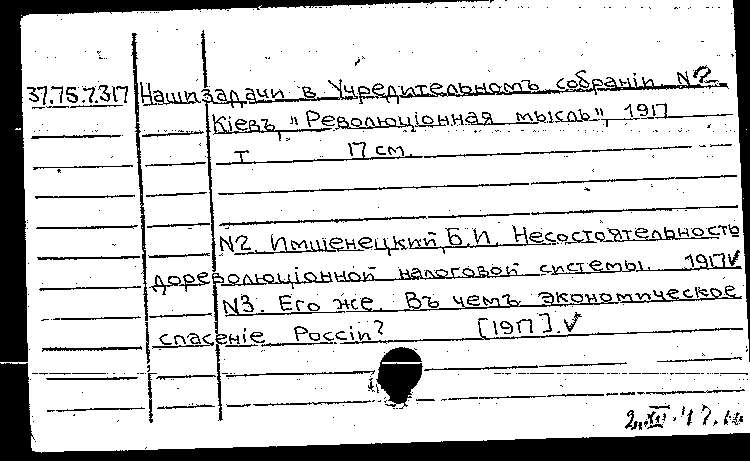 37.75.7.317 Наши задачи в Учредительномъ собранiи. N2
Кiевъ, "Революцiонная мысль", 1917
т 17 см.
N2. Имшенецкий, Б.И. Несостоятельность
дореволюцiонной налоговой системы. 1917 ✓
N3. Его же. Въ чемъ экономическое
спасенiе Россiи? [1917]. ✓